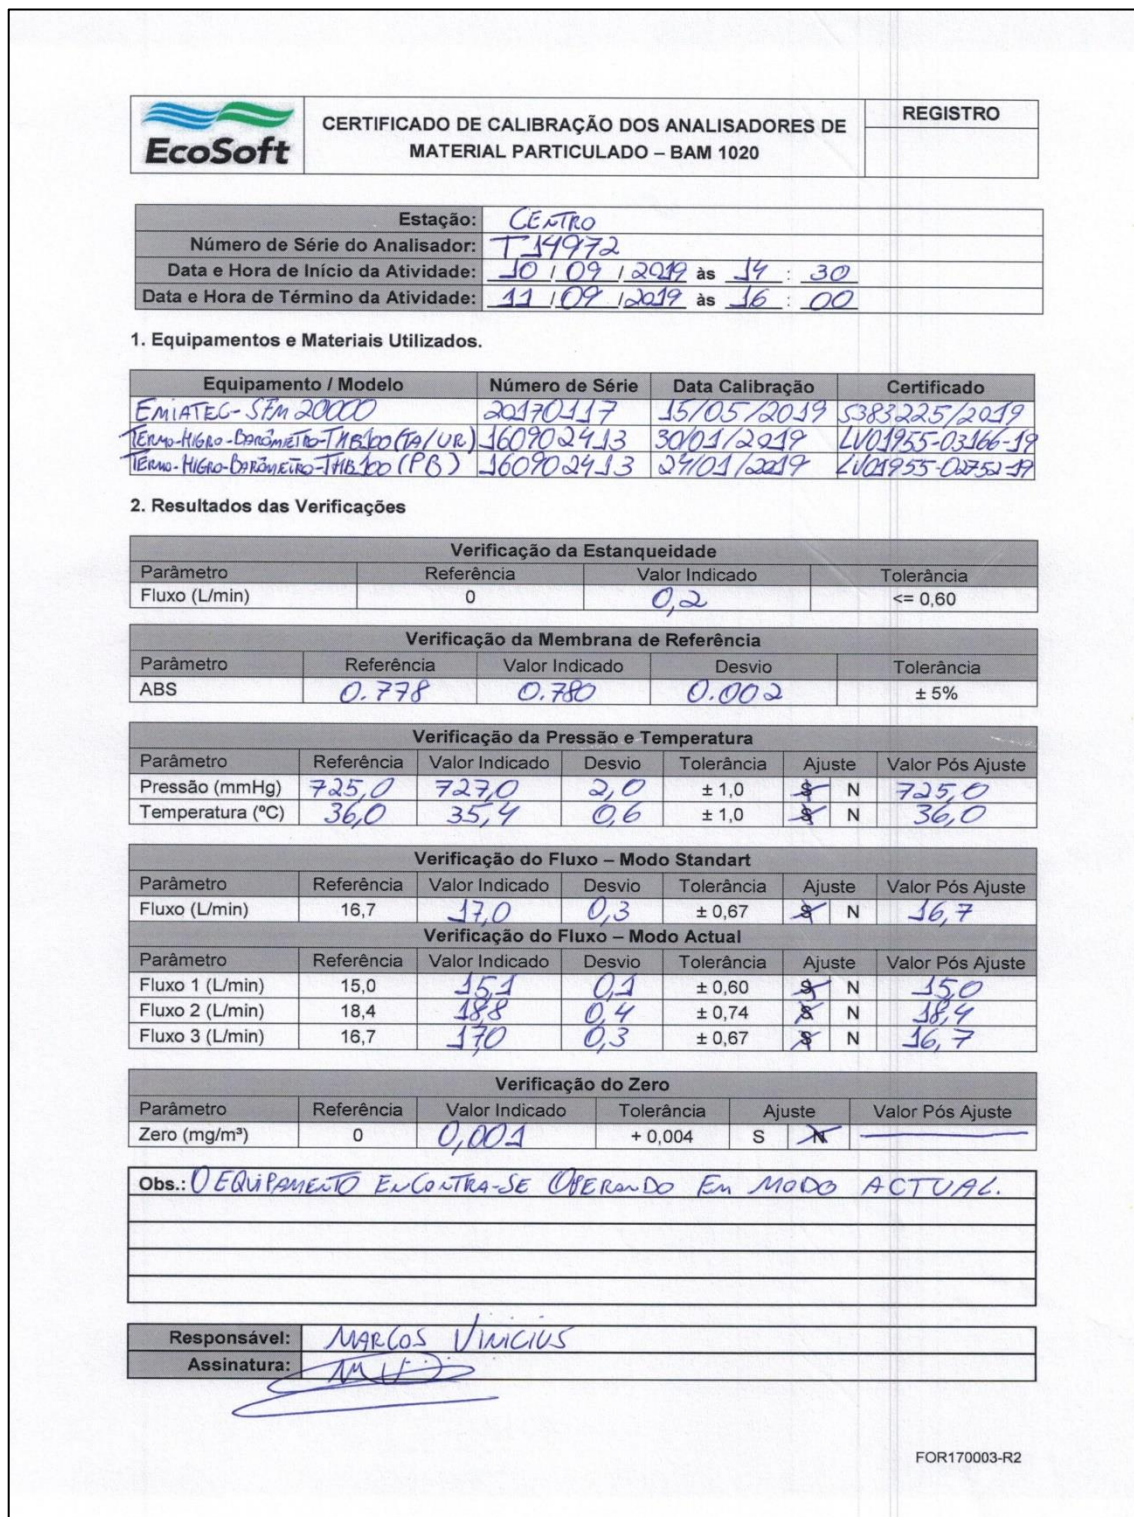 EcoSoft
CERTIFICADO DE CALIBRAÇÃO DOS ANALISADORES DE
MATERIAL PARTICULADO – BAM 1020
REGISTRO
Estação: CENTRO
Número de Série do Analisador: T14972
Data e Hora de Início da Atividade: 10 / 09 / 2019 às 14 : 30
Data e Hora de Término da Atividade: 11 / 09 / 2019 às 16 : 00
1. Equipamentos e Materiais Utilizados.
Equipamento / Modelo Número de Série Data Calibração Certificado
EMIATEC-SFM 20000 20170117 15/05/2019 S383225/2019
TERMO-HIGRO-BARÔMETRO-THB100 (TA/UR) 160902413 30/01/2019 LV01955-03166-19
TERMO-HIGRO-BARÔMETRO-THB100 (PB) 160902413 29/01/2019 LV01955-02752-19
2. Resultados das Verificações
Verificação da Estanqueidade
Parâmetro Referência Valor Indicado Tolerância
Fluxo (L/min) 0 0,2 <= 0,60
Verificação da Membrana de Referência
Parâmetro Referência Valor Indicado Desvio Tolerância
ABS 0.778 0.780 0.002 ± 5%
Verificação da Pressão e Temperatura
Parâmetro Referência Valor Indicado Desvio Tolerância Ajuste Valor Pós Ajuste
Pressão (mmHg) 725,0 727,0 2,0 ± 1,0 S N 725,0
Temperatura (ºC) 36,0 35,4 0,6 ± 1,0 S N 36,0
Verificação do Fluxo – Modo Standart
Parâmetro Referência Valor Indicado Desvio Tolerância Ajuste Valor Pós Ajuste
Fluxo (L/min) 16,7 17,0 0,3 ± 0,67 S N 16,7
Verificação do Fluxo – Modo Actual
Parâmetro Referência Valor Indicado Desvio Tolerância Ajuste Valor Pós Ajuste
Fluxo 1 (L/min) 15,0 15,1 0,1 ± 0,60 S N 15,0
Fluxo 2 (L/min) 18,4 18,8 0,4 ± 0,74 S N 18,4
Fluxo 3 (L/min) 16,7 17,0 0,3 ± 0,67 S N 16,7
Verificação do Zero
Parâmetro Referência Valor Indicado Tolerância Ajuste Valor Pós Ajuste
Zero (mg/m³) 0 0,001 + 0,004 S N
Obs.: O EQUIPAMENTO ENCONTRA-SE OPERANDO EM MODO ACTUAL.
Responsável: MARCOS VINICIUS
Assinatura:
FOR170003-R2